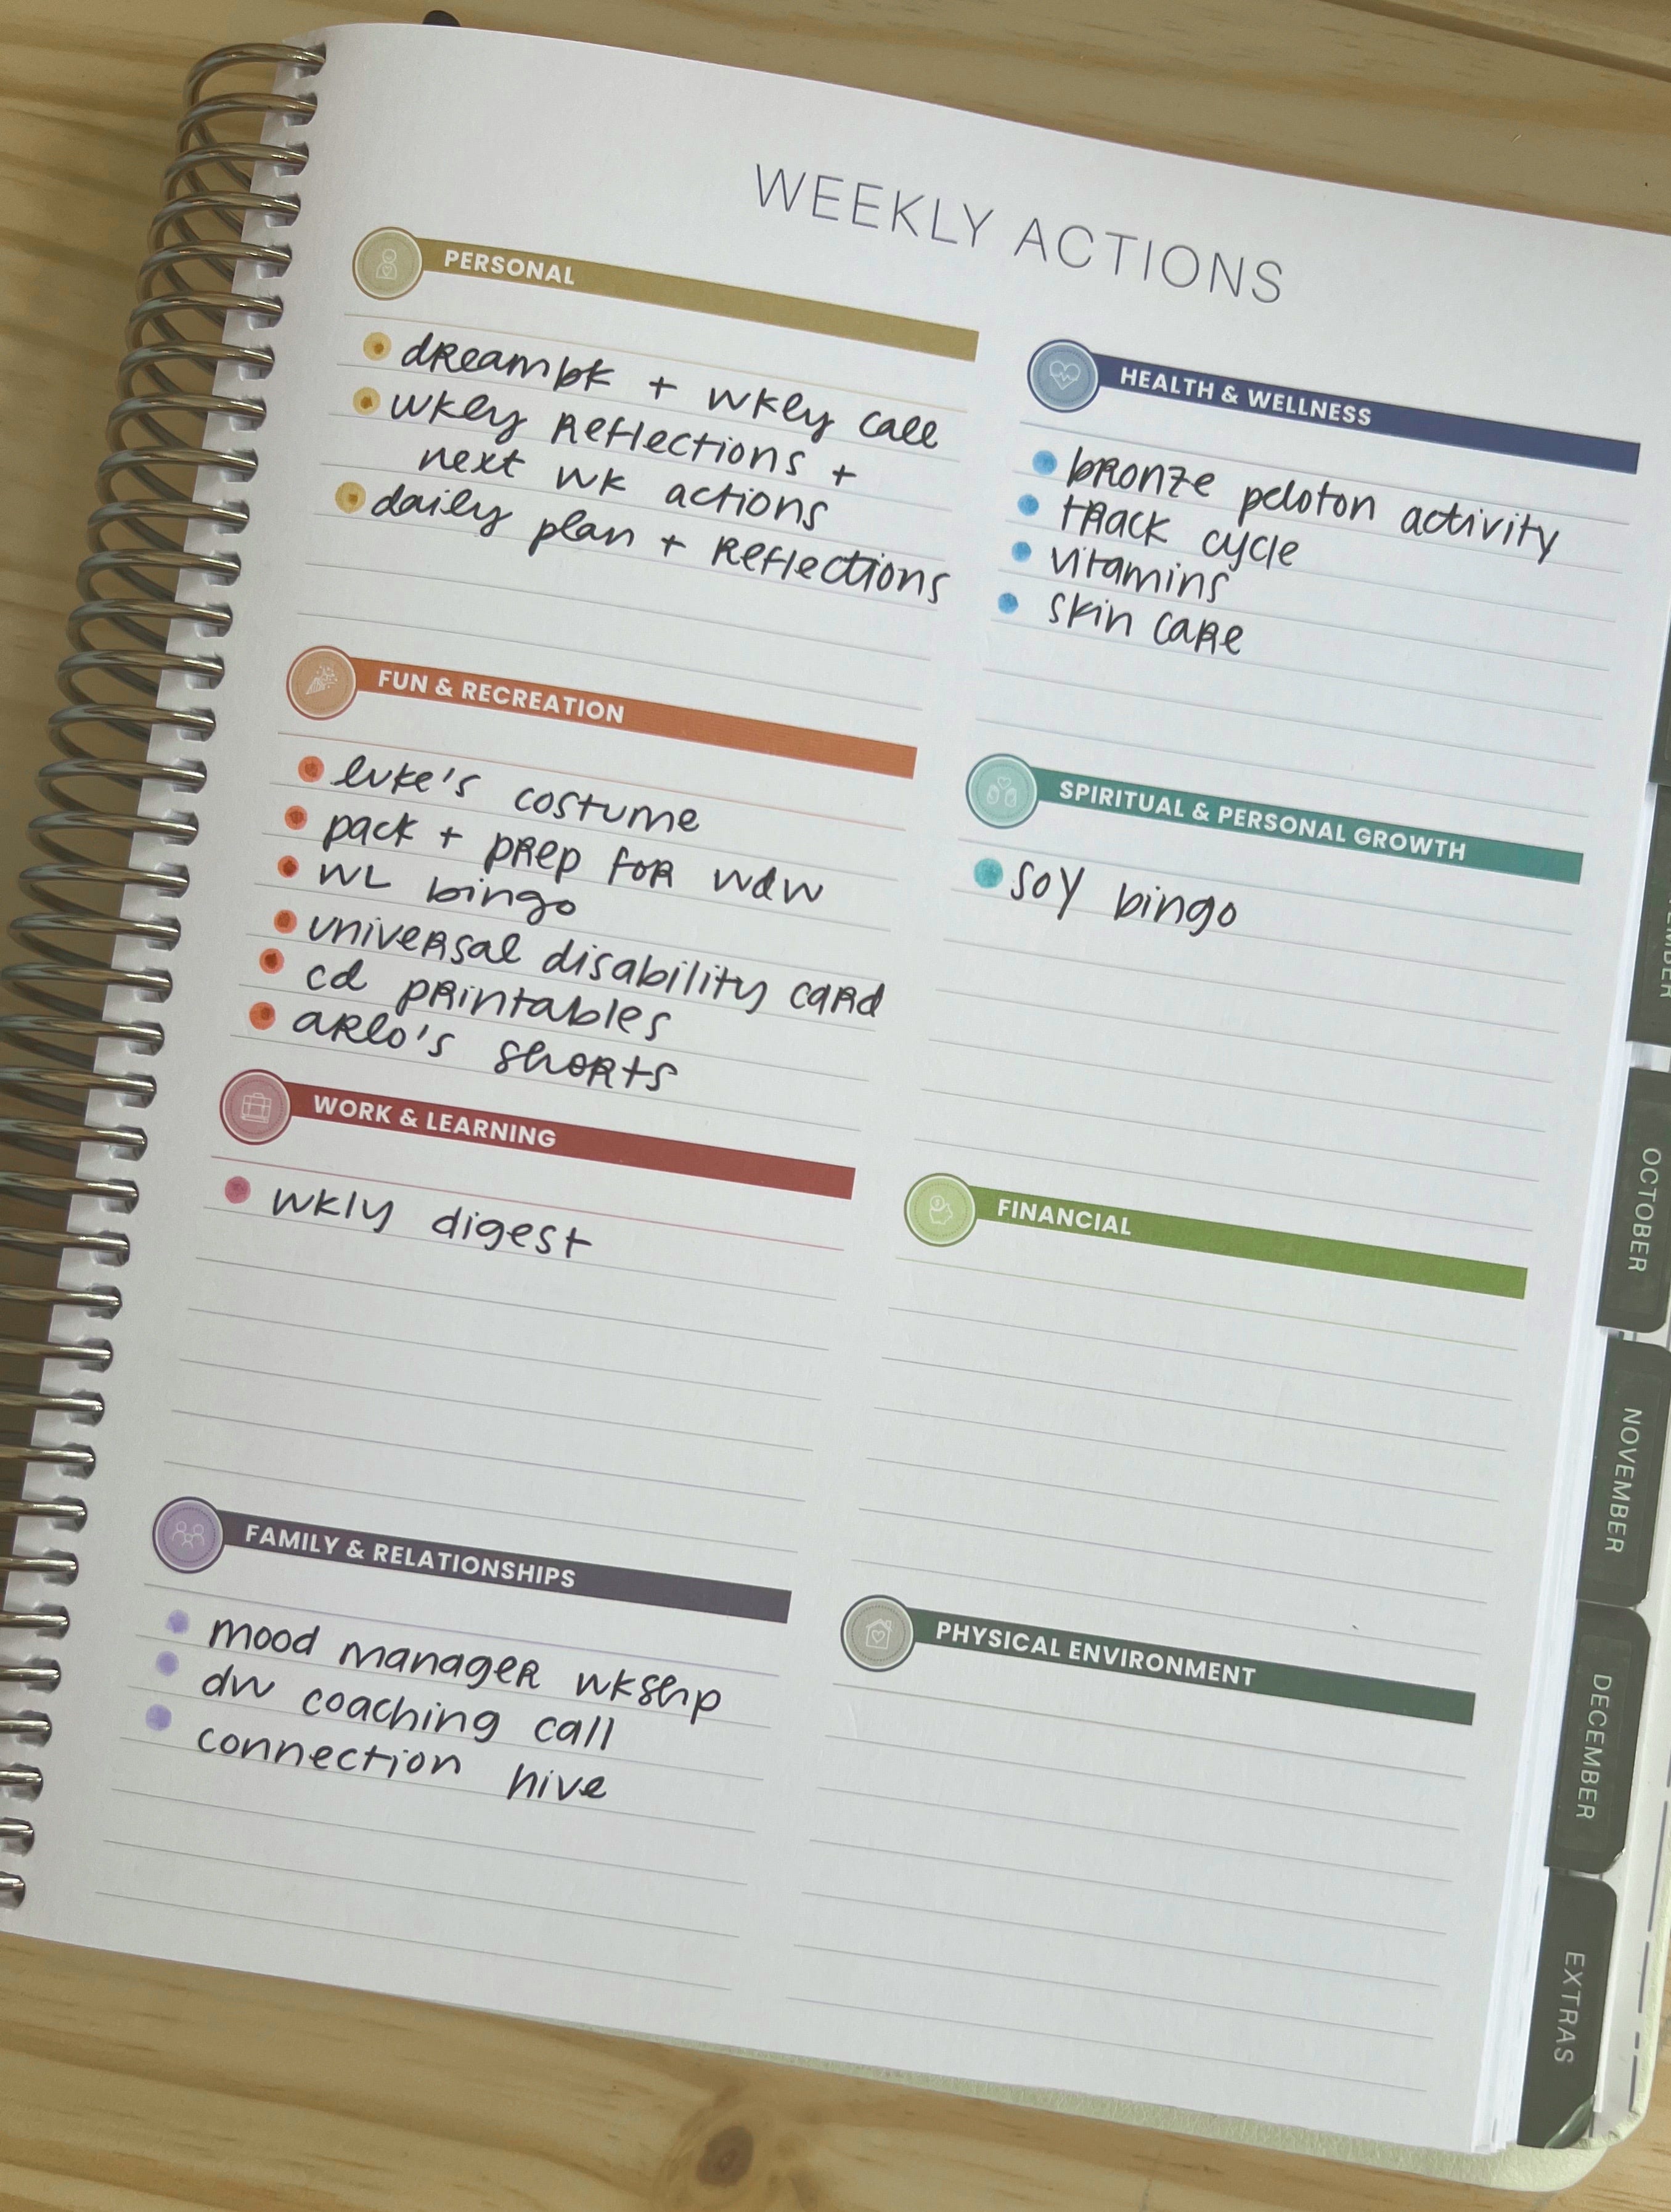 WEEKLY ACTIONS
PERSONAL
dreambk + wkly call
wkly reflections +
next wk actions
daily plan + reflections
FUN & RECREATION
luke's costume
pack + prep for wdw
WL bingo
universal disability card
cd printables
arlo's shorts
WORK & LEARNING
wkly digest
FAMILY & RELATIONSHIPS
mood manager wkshp
dw coaching call
connection hive
HEALTH & WELLNESS
bronze peloton activity
track cycle
vitamins
skin care
SPIRITUAL & PERSONAL GROWTH
soy bingo
FINANCIAL
PHYSICAL ENVIRONMENT
OCTOBER
NOVEMBER
DECEMBER
EXTRAS